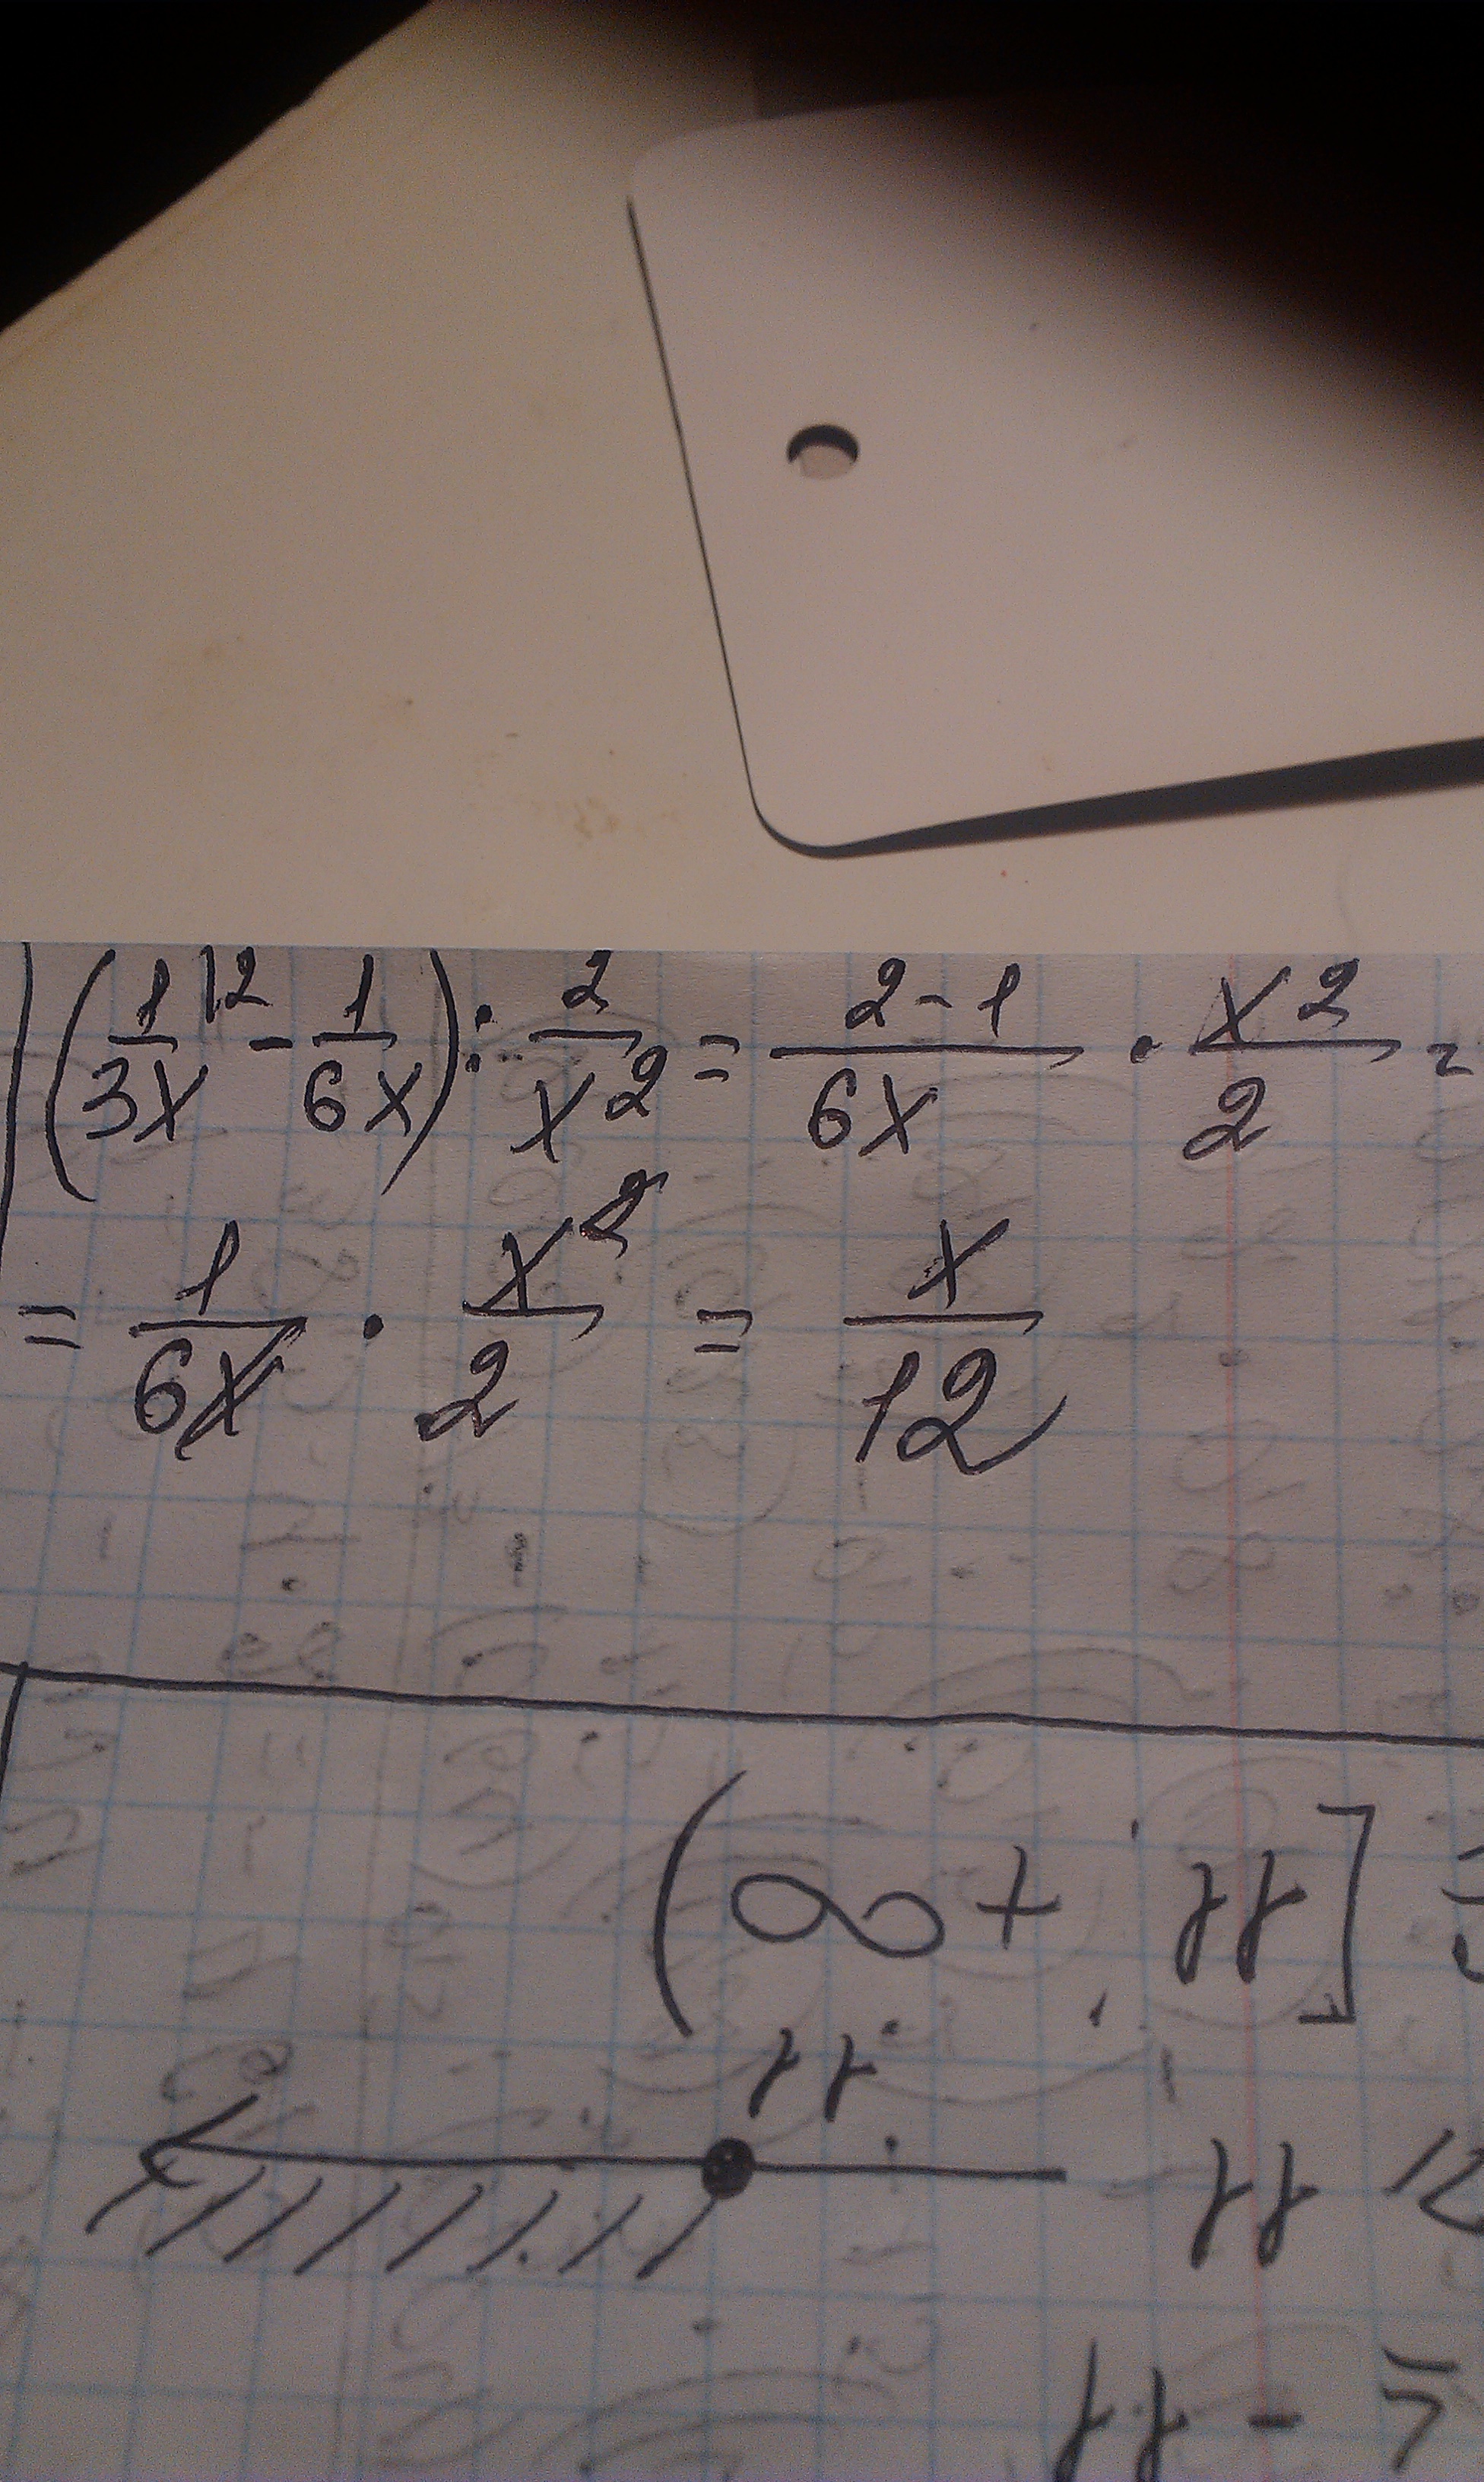 (1/3x |2 - 1/6x) : 2/x² = 2-1/6x · x²/2 =
= 1/6x · x²/2 = x/12
[11; +∞)
11
11
- 11